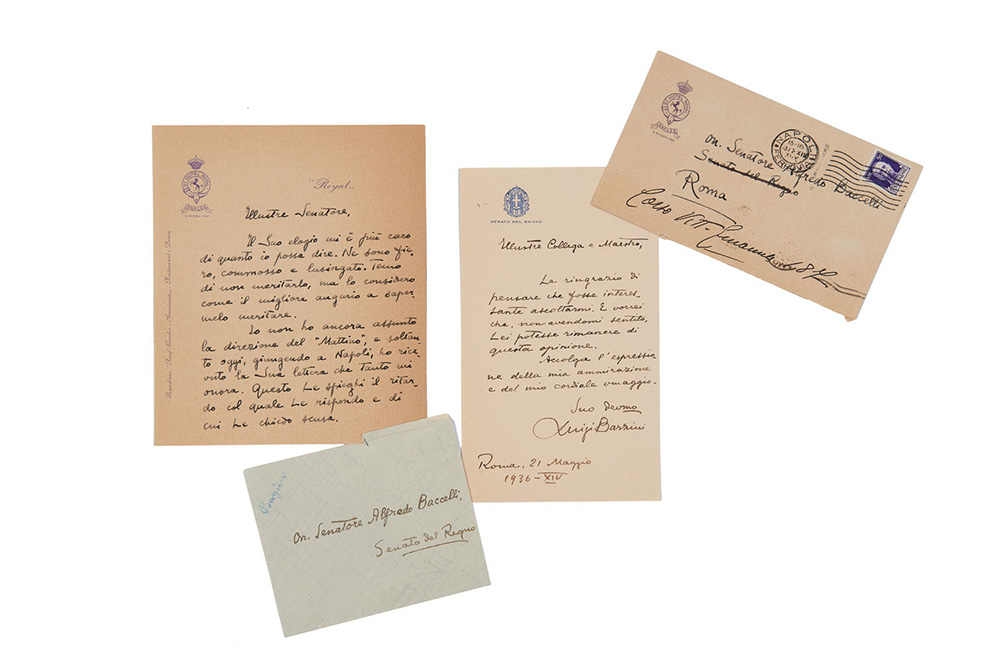 "Royal"
Illustre Senatore,
Il Suo elogio mi è più caro
di quanto io possa dire. Ne sono fie-
ro, commosso e lusingato. Temo
di non meritarlo, ma lo considero
come il migliore augurio a saper-
melo meritare.
Io non ho ancora assunto
la direzione del "Mattino", e soltan-
to oggi, giungendo a Napoli, ho rice-
vuto la Sua lettera che tanto mi
onora. Questo Le spieghi il ritar-
do col quale Le rispondo e di
cui Le chiedo scusa.
SENATO DEL REGNO
Illustre Collega e Maestro,
La ringrazio di
pensare che fosse interes-
sante ascoltarmi. E vorrei
che, non avendomi sentito,
Lei potesse rimanere di
questa opinione.
Accolga l'espressio
ne della mia ammirazione
e del mio cordiale omaggio.
Suo devmo
Luigi Barzini
Roma, 21 Maggio
1936-XIV
NAPOLI
On. Senatore Alfredo Baccelli
Senato del Regno
Roma
Corso Vitt. Emanuele
On. Senatore Alfredo Baccelli,
Senato del Regno